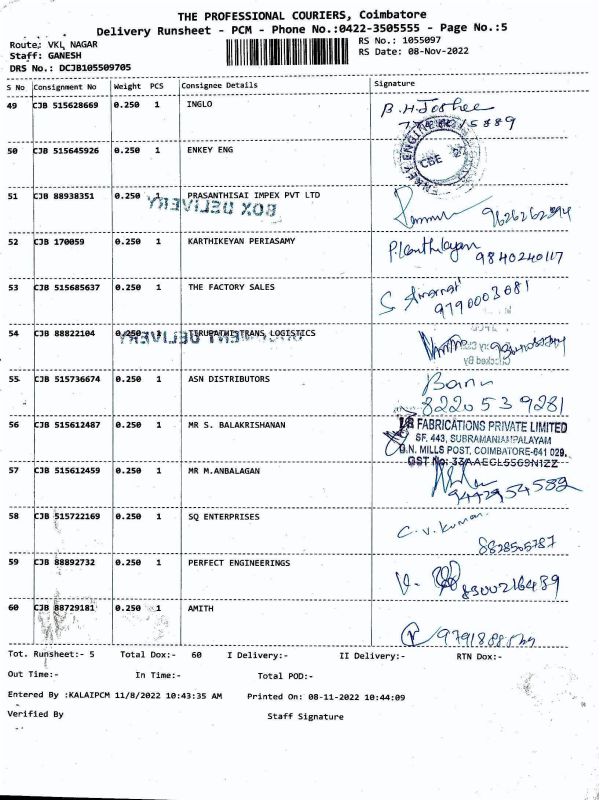 THE PROFESSIONAL COURIERS, Coimbatore
Delivery Runsheet - PCM - Phone No.:0422-3505555 - Page No.:5
Route: VKL NAGAR
RS No.: 1055097
Staff: GANESH
RS Date: 08-Nov-2022
DRS No.: DCJB105509705
S No Consignment No Weight PCS Consignee Details Signature
49 CJB 515628669 0.250 1 INGLO B.H.Joshee
50 CJB 515645926 0.250 1 ENKEY ENG
CBE
51 CJB 88938351 0.250 1 PRASANTHISAI IMPEX PVT LTD
BOX DELIVERY 9626262394
52 CJB 170059 0.250 1 KARTHIKEYAN PERIASAMY
9840240117
53 CJB 515685637 0.250 1 THE FACTORY SALES
9790003081
54 CJB 88822104 0.250 1 TIRUPATHI TRANS LOGISTICS
Checked By
55 CJB 515736674 0.250 1 ASN DISTRIBUTORS
8220539281
56 CJB 515612487 0.250 1 MR S. BALAKRISHANAN
FABRICATIONS PRIVATE LIMITED
SF. 443, SUBRAMANIAMPALAYAM
G.N. MILLS POST, COIMBATORE-641 029.
GST No: 33AAECL5569N1ZZ
57 CJB 515612459 0.250 1 MR M.ANBALAGAN
9442954582
58 CJB 515722169 0.250 1 SQ ENTERPRISES C.V.Kumar
8828505787
59 CJB 88892732 0.250 1 PERFECT ENGINEERINGS
8300216489
60 CJB 88729181 0.250 1 AMITH
Tot. Runsheet:- 5 Total Dox:- 60 I Delivery:- II Delivery:- RTN Dox:-
Out Time:- In Time:- Total POD:-
Entered By :KALAIPCM 11/8/2022 10:43:35 AM Printed On: 08-11-2022 10:44:09
Verified By Staff Signature